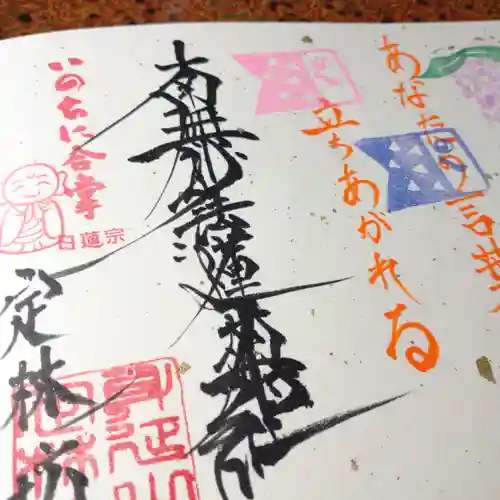 あなたの言葉
立ちあがれる
南無妙法蓮華経
いのちに合掌
日蓮宗
定林坊
身延山